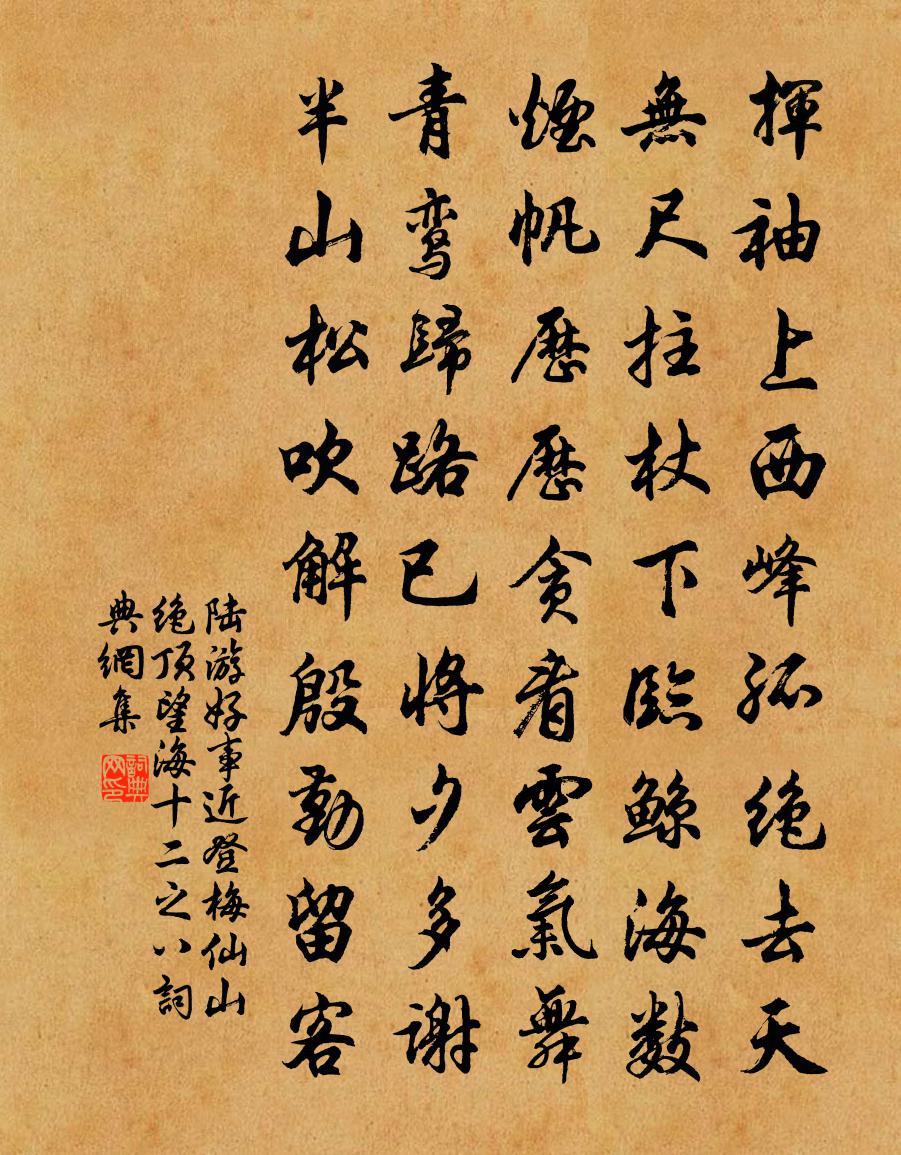 揮袖上西峰孤绝去天
無尺拄杖下臨鲸海数
煙帆歷歷貪看雲氣舞
青鸾歸路已將夕多謝
半山松吹解殷勤留客
陆游好事近登梅仙山
绝顶望海十二之八詞
典網集
詞典网印